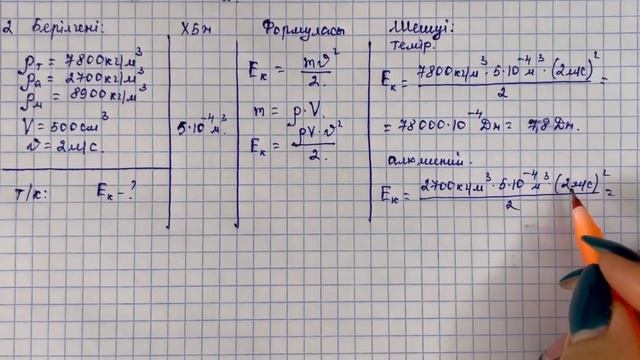 2 Берілгені:
ρт = 7800кг/м³
ρа = 2700кг/м³
ρм = 8900кг/м³
V = 500см³
υ = 2м/с.
Т/к: Eк - ?
ХБЖ
5·10⁻⁴м³.
Формуласы
Eк = mυ²/2.
m = ρ·V.
Eк = ρV·υ²/2.
Шешуі:
темір.
Eк = 7800кг/м³·5·10⁻⁴м³·(2м/с)²/2 =
= 78000·10⁻⁴Дж = 7,8Дж.
алюминий.
Eк = 2700кг/м³·5·10⁻⁴м³·(2м/с)²/2 =